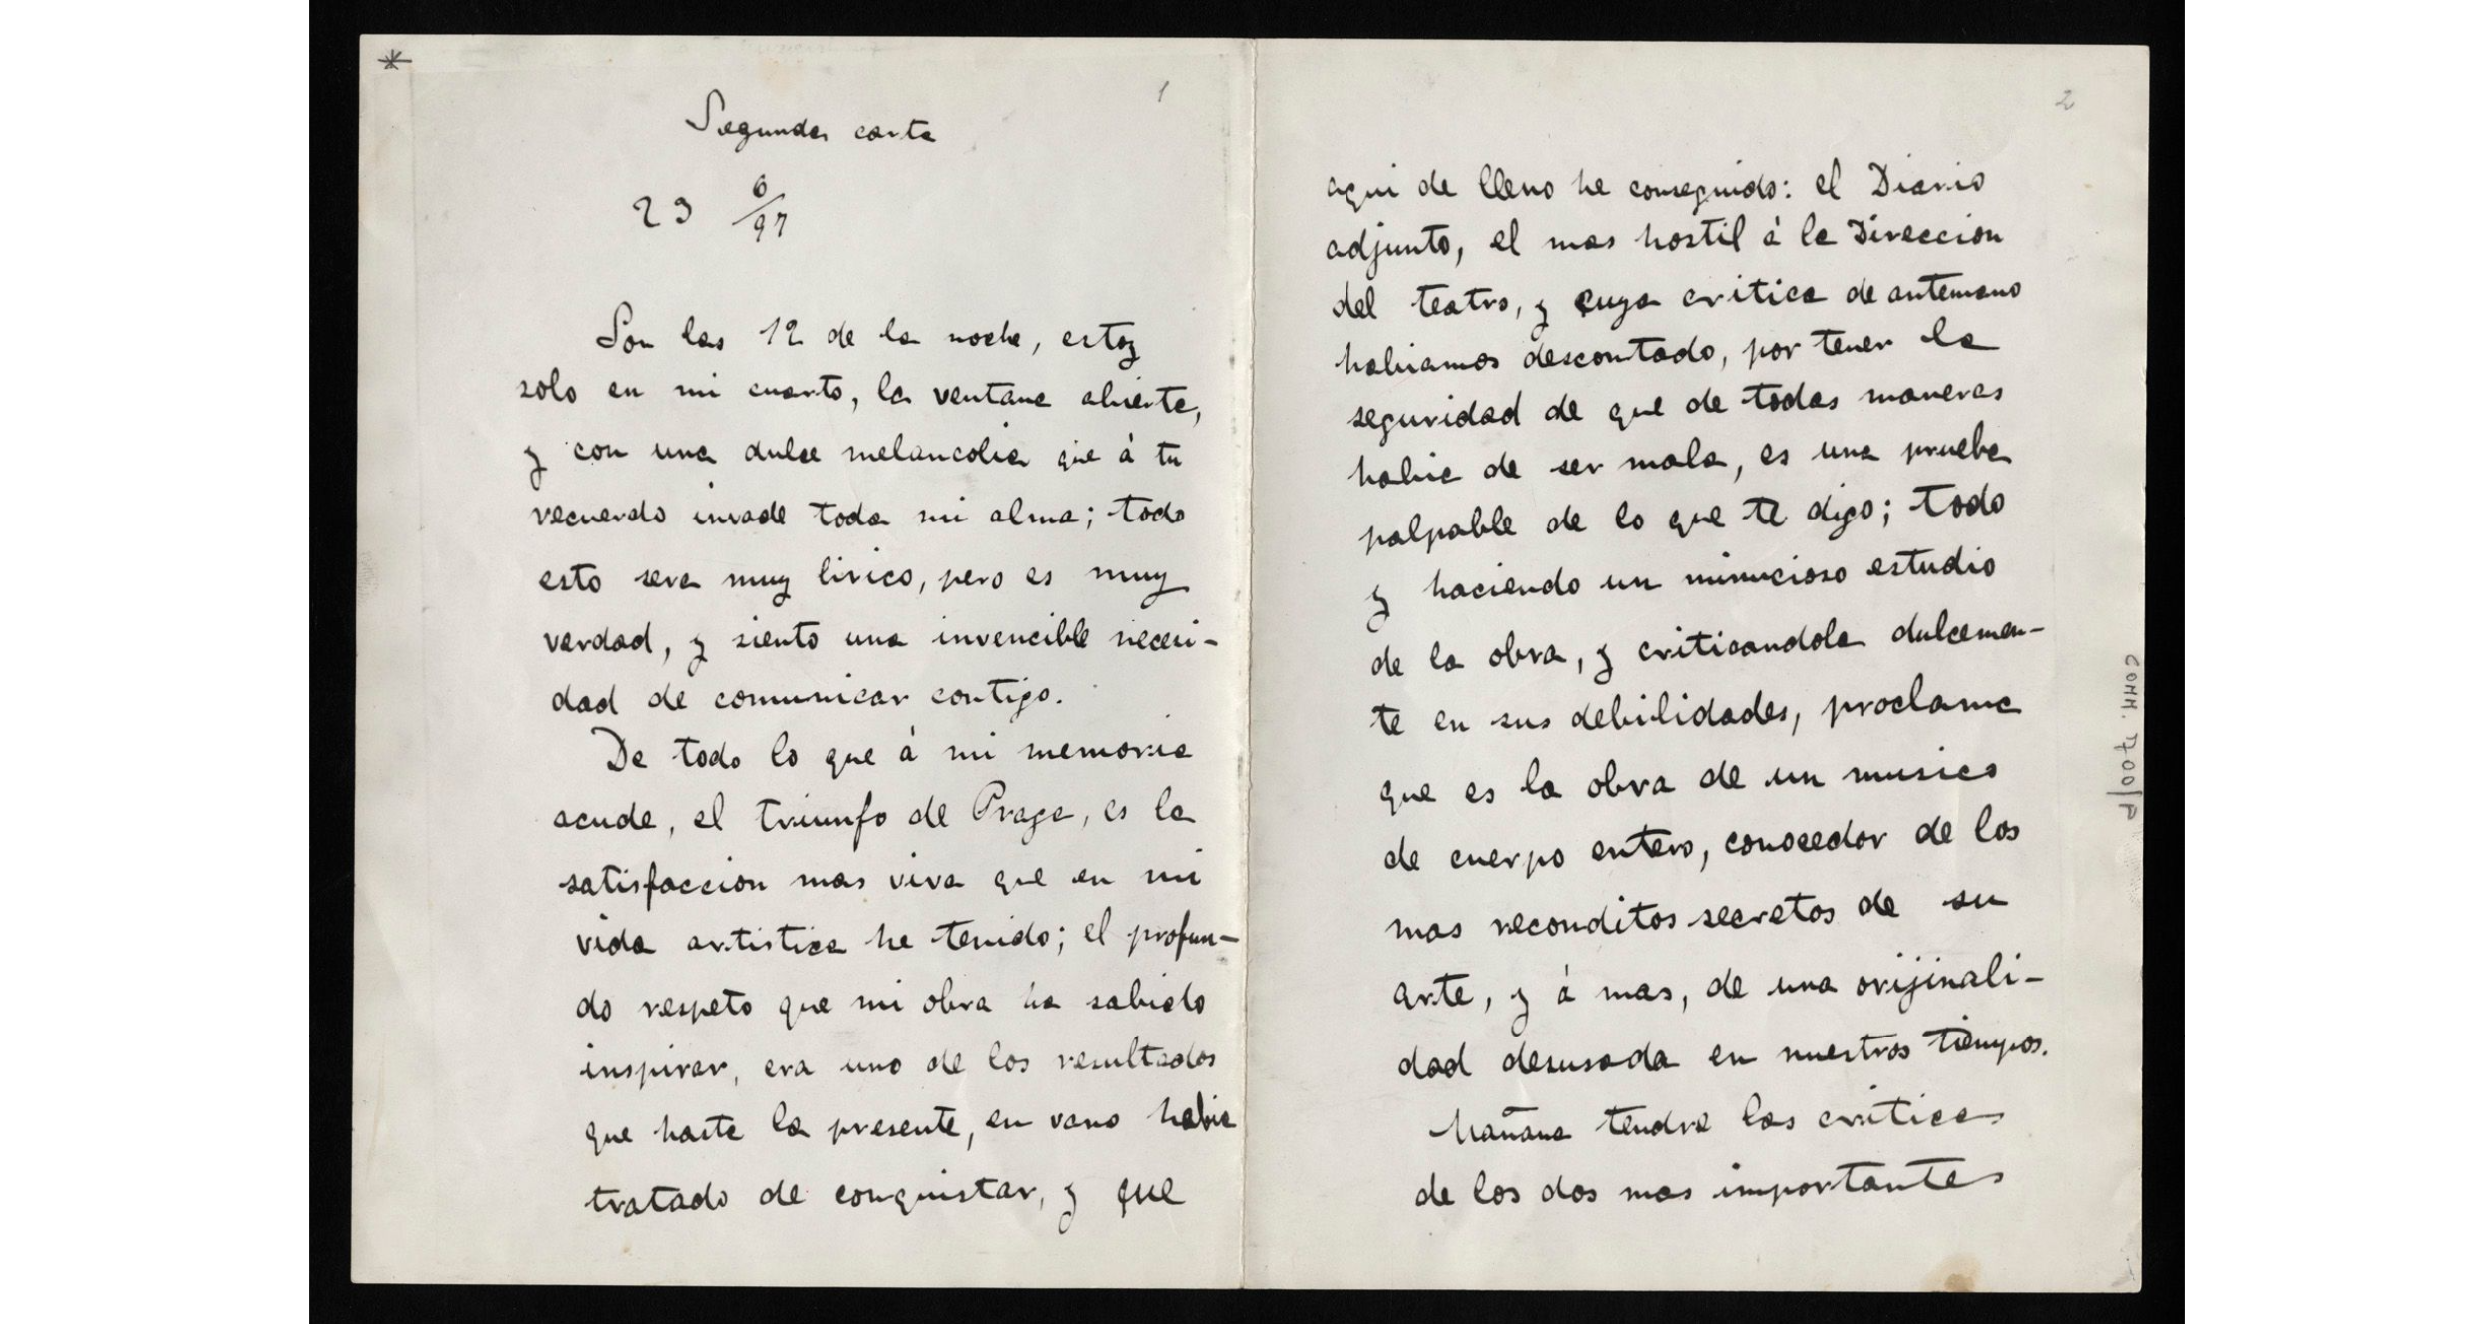 *
1
Segunda carta
23 6/97
Son las 12 de la noche, estoy
solo en mi cuarto, la ventana abierta,
y con una dulce melancolia que á tu
recuerdo invade toda mi alma; todo
esto sera muy lirico, pero es muy
verdad, y siento una invencible necesi-
dad de comunicar contigo.
De todo lo que á mi memoria
acude, el triunfo de Praga, es la
satisfaccion mas viva que en mi
vida artistica he tenido; el profun-
do respeto que mi obra ha sabido
inspirar, era uno de los resultados
que hasta la presente, en vano habia
tratado de conquistar, y que
2
aqui de lleno he conseguido: el Diario
adjunto, el mas hostil á la Direccion
del teatro, y cuya critica de antemano
habiamos descontado, por tener la
seguridad de que de todas maneras
habia de ser mala, es una prueba
palpable de lo que te digo; todo
y haciendo un minucioso estudio
de la obra, y criticandola dulcemen-
te en sus debilidades, proclama
que es la obra de un musico
de cuerpo entero, conocedor de los
mas reconditos secretos de su
arte, y á mas, de una orijinali-
dad desusada en nuestros tiempos.
Mañana tendre las criticas
de los dos mas importantes
COMM. 700/P